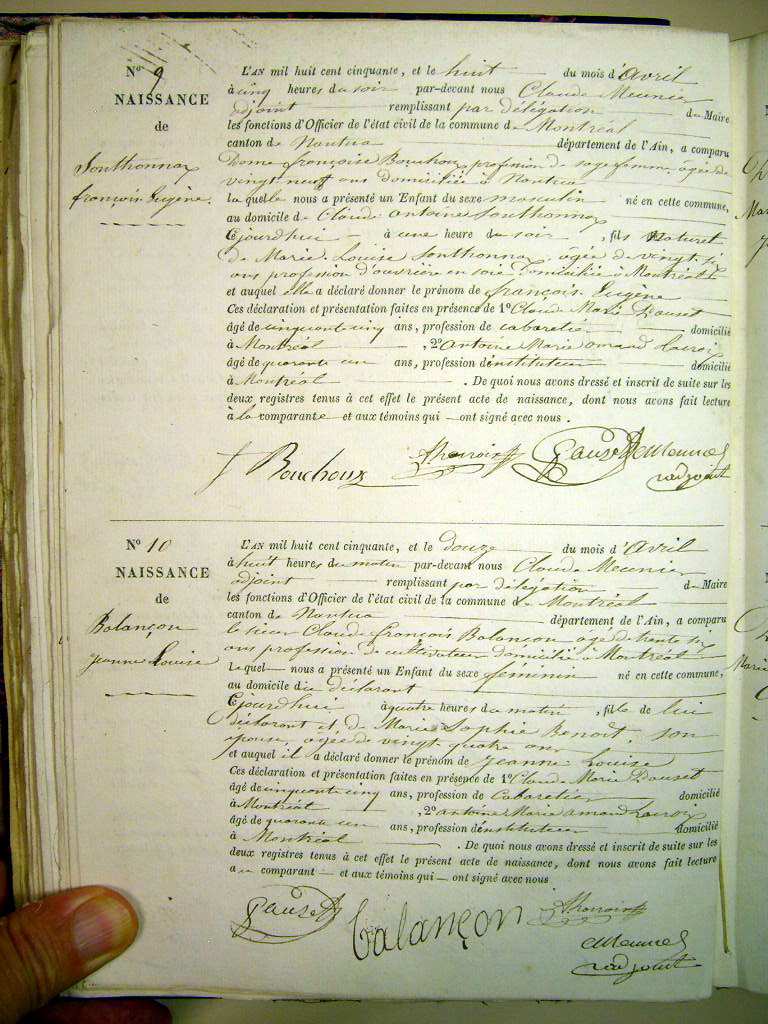 N° 9
NAISSANCE
de
Sonthonnax
françois Eugène.
L'AN mil huit cent cinquante, et le huit du mois d'Avril
à cinq heures du soir par-devant nous Claude Meunier
adjoint remplissant par délégation du Maire
les fonctions d'Officier de l'état civil de la commune de Montréal
canton de Nantua département de l'Ain, a comparu
Dame françoise Bouchoux profession de sage femme, agée de
vingt neuf ans domiciliée à Nantua
laquelle nous a présenté un Enfant du sexe masculin né en cette commune,
au domicile de Claude antoine Sonthonnax
Cejourdhui à une heure du soir, fils Naturel
de Marie Louise Sonthonnax, agée de vingt six
ans profession d'ouvrière en soie domiciliée à Montréal
et auquel elle a déclaré donner le prénom de françois Eugène
Ces déclaration et présentation faites en présence de 1° Claude Marie Pauset
âgé de cinquante cinq ans, profession de cabaretier domicilié
à Montréal, 2° Antoine Marie amand Lacroix
âgé de quarante un ans, profession d'instituteur domicilié
à Montréal. De quoi nous avons dressé et inscrit de suite sur les
deux registres tenus à cet effet le présent acte de naissance, dont nous avons fait lecture
à la comparante et aux témoins qui ont signé avec nous.
f Bouchoux Pauset Meunier
adjoint
N° 10
NAISSANCE
de
Balançon
jeanne Louise
L'AN mil huit cent cinquante, et le douze du mois d'Avril
à huit heures du matin par-devant nous Claude Meunier
adjoint remplissant par délégation du Maire
les fonctions d'Officier de l'état civil de la commune de Montréal
canton de Nantua département de l'Ain, a comparu
le sieur Claude françois Balançon agé de trente six
ans profession de cultivateur domicilié à Montréal
Lequel nous a présenté un Enfant du sexe féminin né en cette commune,
au domicile du déclarant
Cejourdhui à quatre heures du matin, fille de lui
déclarant et de Marie Sophie Benoît, son
épouse, agée de vingt quatre ans
et auquel il a déclaré donner le prénom de jeanne Louise
Ces déclaration et présentation faites en présence de 1° Claude Marie Pauset
âgé de cinquante cinq ans, profession de Cabaretier domicilié
à Montréal, 2° antoine Marie amand Lacroix
âgé de quarante un ans, profession d'instituteur domicilié
à Montréal. De quoi nous avons dressé et inscrit de suite sur les
deux registres tenus à cet effet le présent acte de naissance, dont nous avons fait lecture
au comparant et aux témoins qui ont signé avec nous
Pauset balançon
Meunier
adjoint